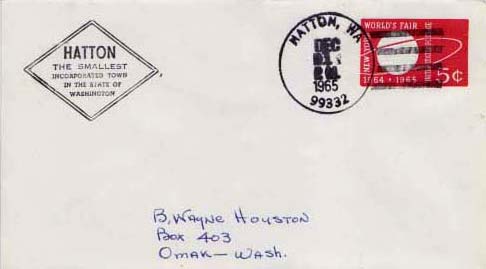 HATTON
THE SMALLEST
INCORPORATED TOWN
IN THE STATE OF
WASHINGTON
HATTON, WA
DEC
1965
99332
WORLD'S FAIR
NEW YORK
1964 · 1965
UNITED STATES POSTAGE
5¢
B. WAYNE HOUSTON
BOX 403
OMAK - WASH.